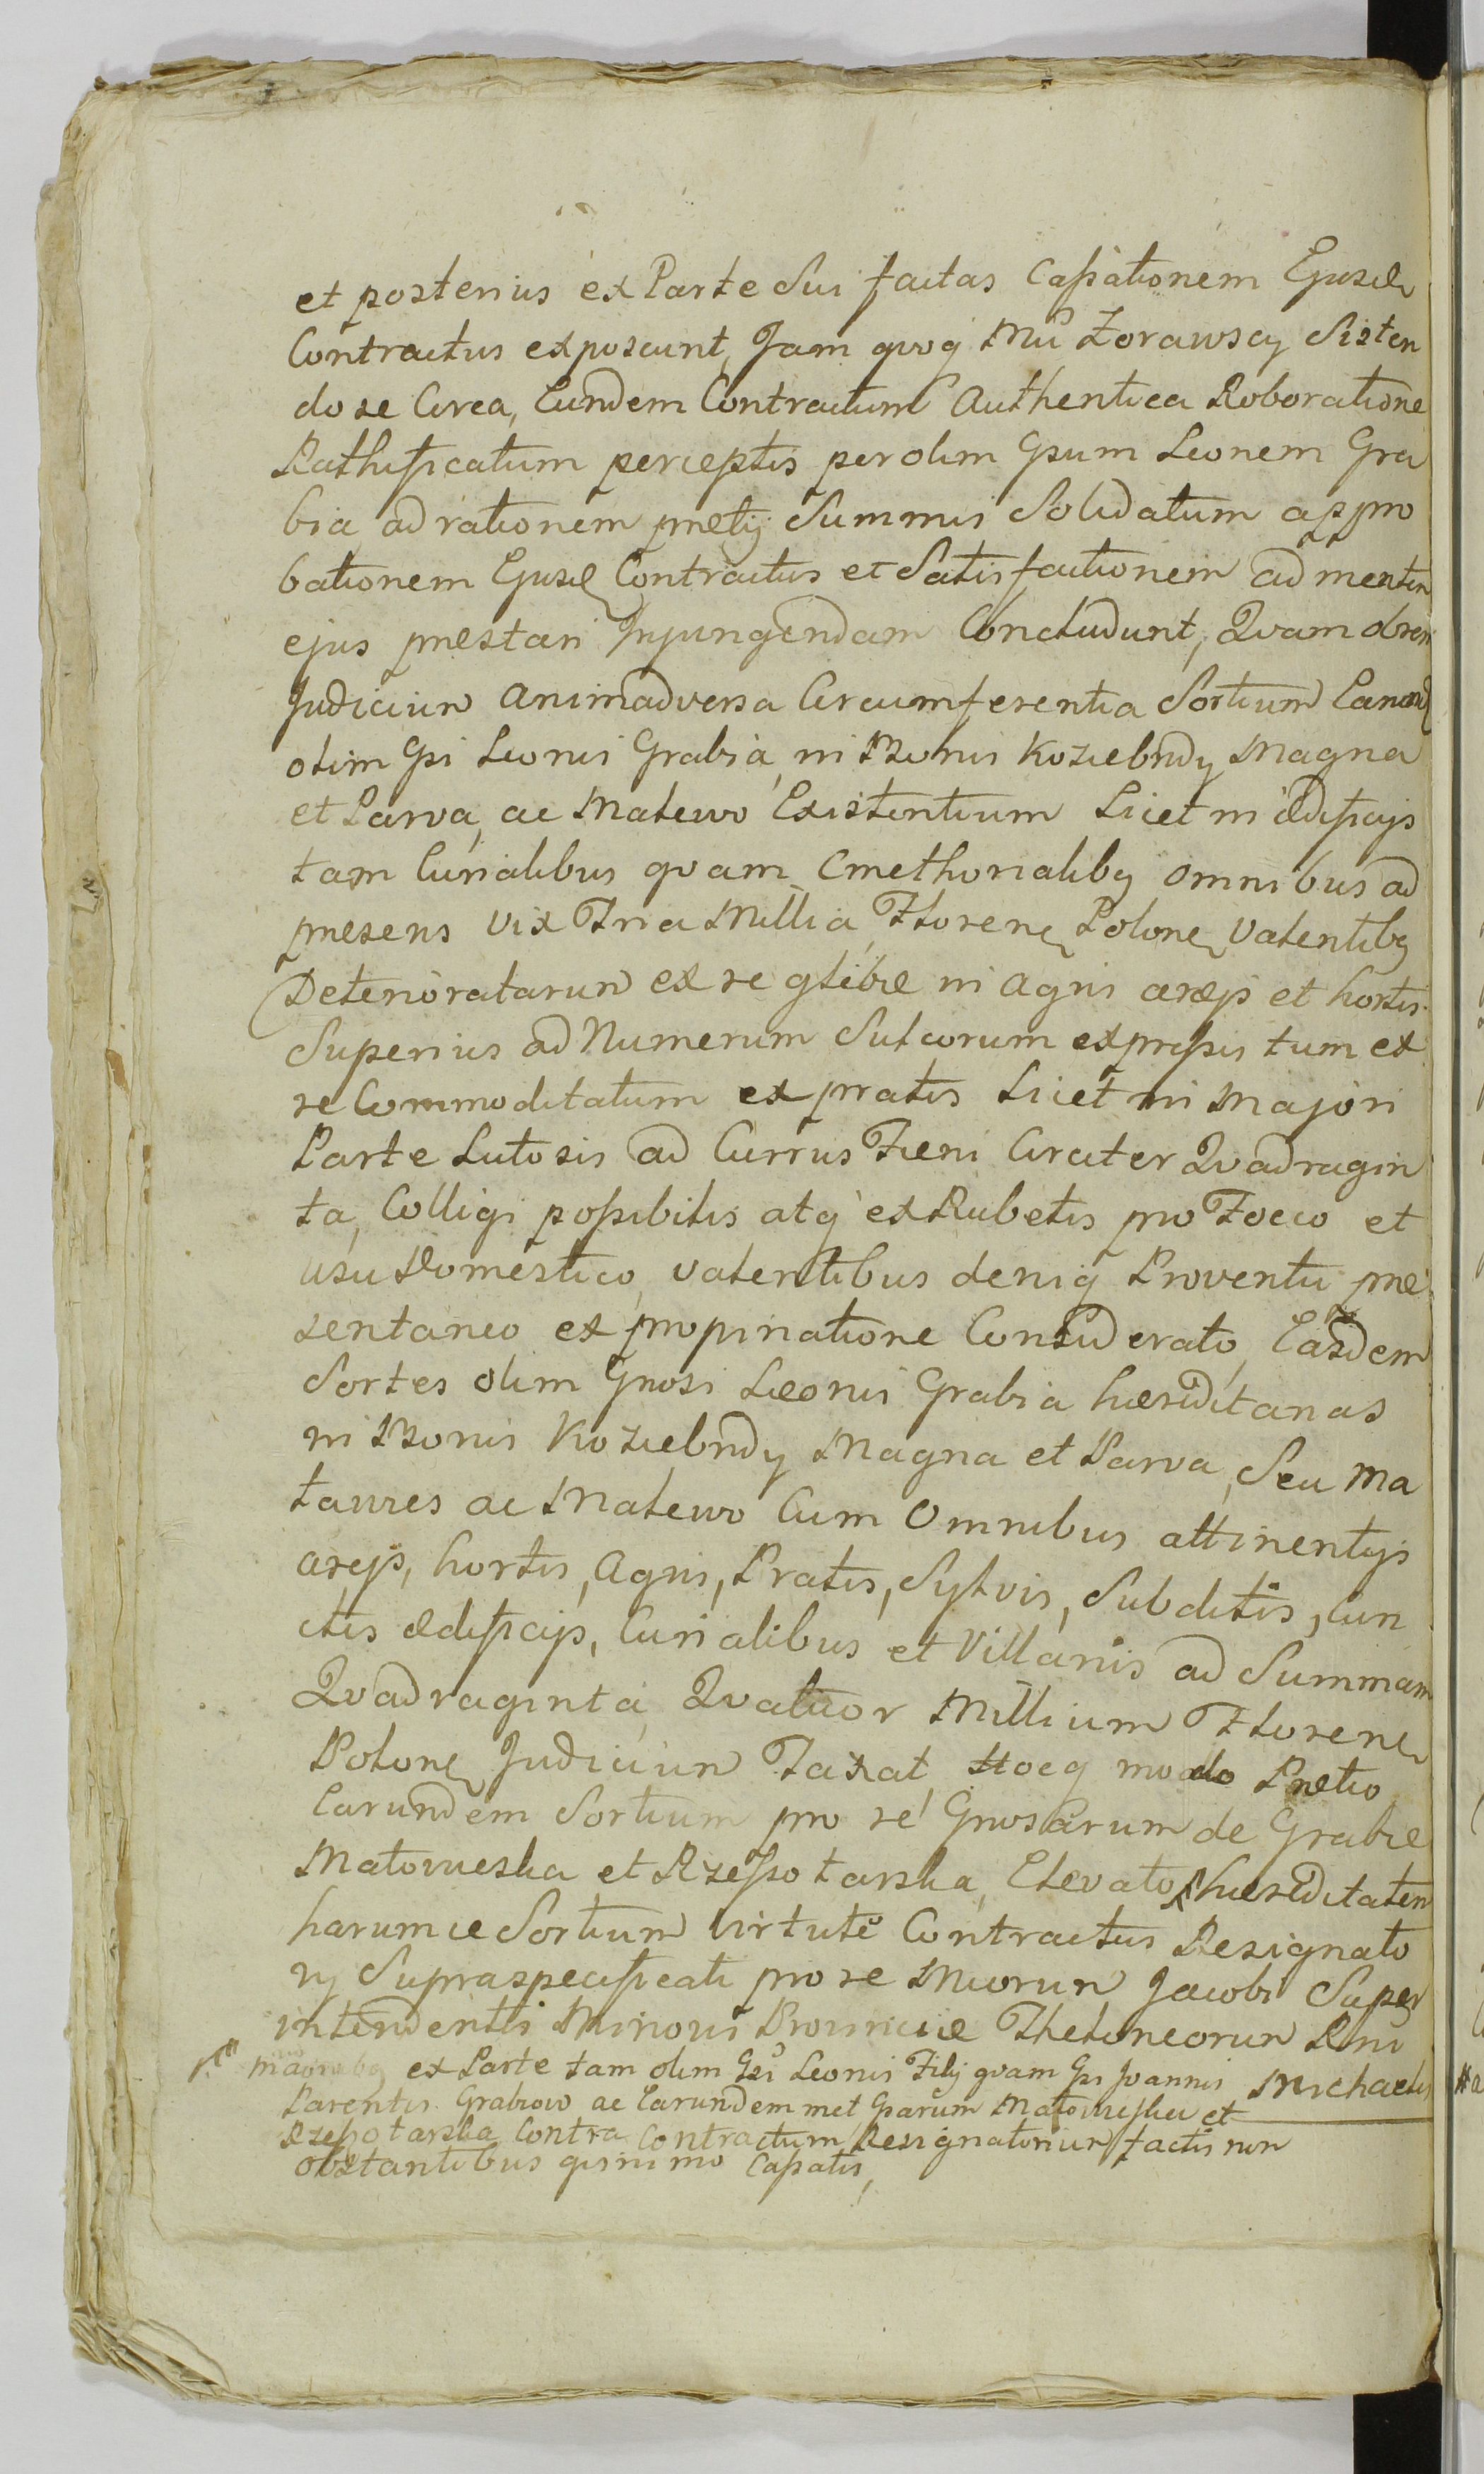 et posterius ex Parte Sui factas Cassationem Ejusd
Contractus exposcunt, Jam quoq Mci Zorawscy Sisten
do se Circa, Eundem Contractum Authentica Roboratione
Rathificatum perceptis per olim Gsum Leonem Gra
bia ad rationem pretij Summis Solidatum appro
bationem Ejusd Contractus et Satisfactionem ad mentem
ejus præstari Injungendam Concludunt, Quam obrem
Judicium animadversa Circumferentia Sortium Earund
olim Gsi Leonis Grabia, in Bonis Koziebrody Magna
et Parva, ac Malewo Existentium Licet in ædificijs
tam Curialibus quam Cmethonialibq omnibus ad
præsens vix Tria Millia Floren Polon valentibq
Deterioratarum ex re glebæ in Agris areis et hortis
Superius ad Numerum Sulcorum expressis tum ex
re Commoditatum ex pratis Licet in Majori
Parte Lutosis ad Currus Fæni Circiter Quadragin
ta, Colligi possibilis atq ex Rubetis pro Foco et
usu Domestico, valentibus deniq Proventu præ
sentaneo ex propinatione Considerato, Easdem
Sortes olim Gnosi Leonis Grabia hæreditarias
in Bonis Koziebrody Magna et Parva, Seu Ma
tawes ac Malewo Cum Omnibus attinentijs
areis, hortis, Agris, Pratis, Sylvis, Subditis, Cun
ctis ædificijs, Curialibus et Villanis ad Summam
Quadraginta Quatuor Millium Floren
Polon Judicium Taxat Hocq modo Pretio
Earundem Sortium pro re Gnosarum de Grabie
Malowieska et Rzessotarska, Elevato hæreditatem
harumce Sortium virtute Contractus Resignato
rij Supraspecificati pro re Mcorum Jacobi Super
intendentis Minoris Provinciæ Theloneorum Rni
ex Parte tam olim Gsi Leonis Filij quam Gsi Joannis Michaelis
Parentis Grabiow ac Earundemmet Gsarum Malowieska et
Rzessotarska Contra Contractum Resignatorium factis non
obstantibus qsinimo Cassatis,